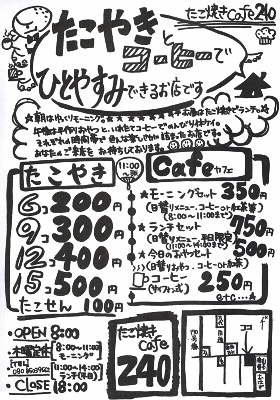 たこ焼きCafe240
たこやき
とコーヒーで
ひとやすみできるお店です
★朝はゆっくりモーニング。★お昼はたこ焼きでランチ
午後は手作りおやつと、いれたてコーヒーでのんびり
それぞれの時間帯で
あなたのご来店をお待ちしております。
たこやき
11:00〜
6コ200円
9コ300円
12コ400円
15コ500円
たこせん100円
Cafeカフェ
★モーニングセット350円
(日替りメニュー、コーヒーor紅茶等)
(8:00〜11:00まで)
★ランチセット750円
(日替りメニュー 平日限定)
(11:00〜14:00まで)
★今日のおやつセット500円
(日替りおやつ・コーヒーor紅茶)
コーヒー250円
(サイフォン式)
etc…
・OPEN 8:00
・木曜定休
[8:00〜11:00 モーニング]
[11:00〜14:00 ランチ(平日)]
[TEL]
・CLOSE 18:00
たこ焼き
Cafe
240
ココ